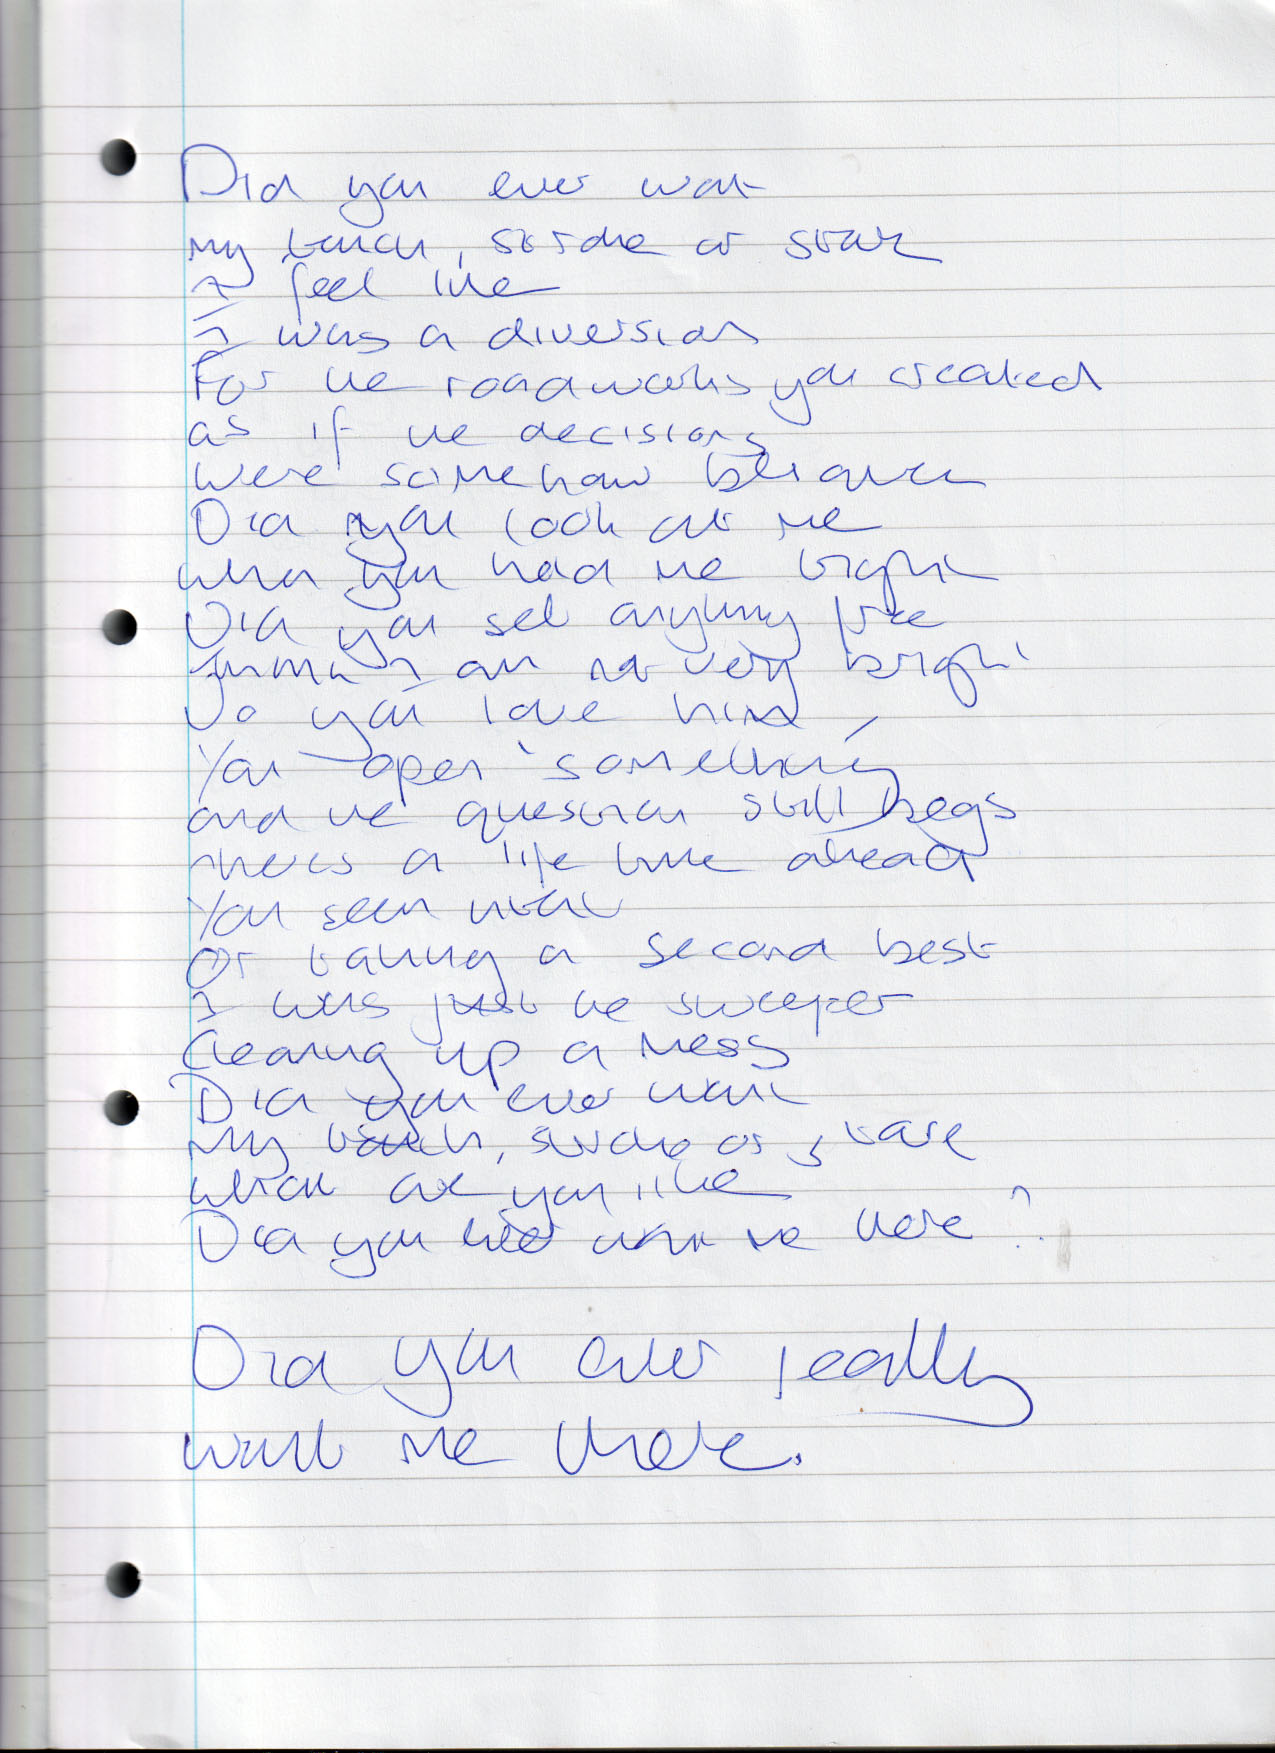 Did you ever want
My touch, stroke or stare
I feel like
I was a diversion
For the roadworks you created
as if the decisions
were somehow
Did you look at me
when you held me tight
Did you see anything
I am not very bright
Do you love him
You open something
and the question still begs
theres a life time ahead
You seem
Or taking a second best
I was just the sweeper
Cleaning up a mess
Did you ever want
My touch, stroke or stare
what are you like
Did you want me there?
Did you ever really
want me there.